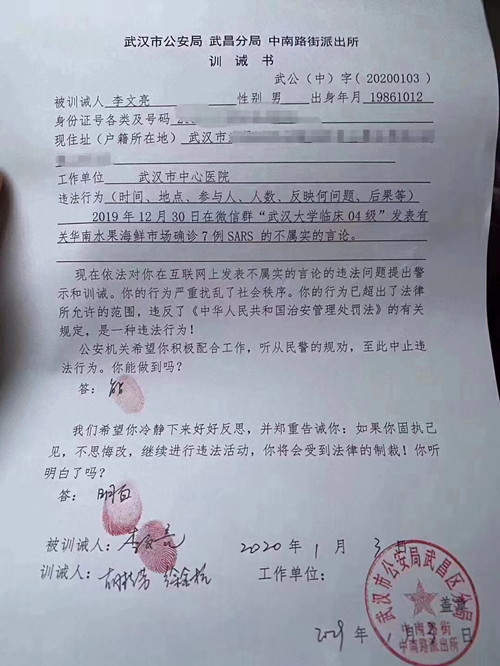 武汉市公安局 武昌分局 中南路街派出所
训 诫 书
武公(中)字(20200103)
被训诫人 李文亮 性别 男 出身年月 19861012
身份证号各类及号码
现住址(户籍所在地) 武汉市
工作单位 武汉市中心医院
违法行为(时间、地点、参与人、人数、反映何问题、后果等)
2019年12月30日在微信群“武汉大学临床04级”发表有
关华南水果海鲜市场确诊7例SARS的不属实的言论。
现在依法对你在互联网上发表不属实的言论的违法问题提出警
示和训诫。你的行为严重扰乱了社会秩序。你的行为已超出了法律
所允许的范围，违反了《中华人民共和国治安管理处罚法》的有关
规定，是一种违法行为！
公安机关希望你积极配合工作，听从民警的规劝，至此中止违
法行为。你能做到吗？
答： 能
我们希望你冷静下来好好反思，并郑重告诫你：如果你固执己
见，不思悔改，继续进行违法活动，你将会受到法律的制裁！你听
明白了吗？
答： 明白
被训诫人： 李文亮 2020年1月3日
训诫人： 工作单位：
盖章
年1月3日
武汉市公安局武昌区分局
中南路街
中南路派出所